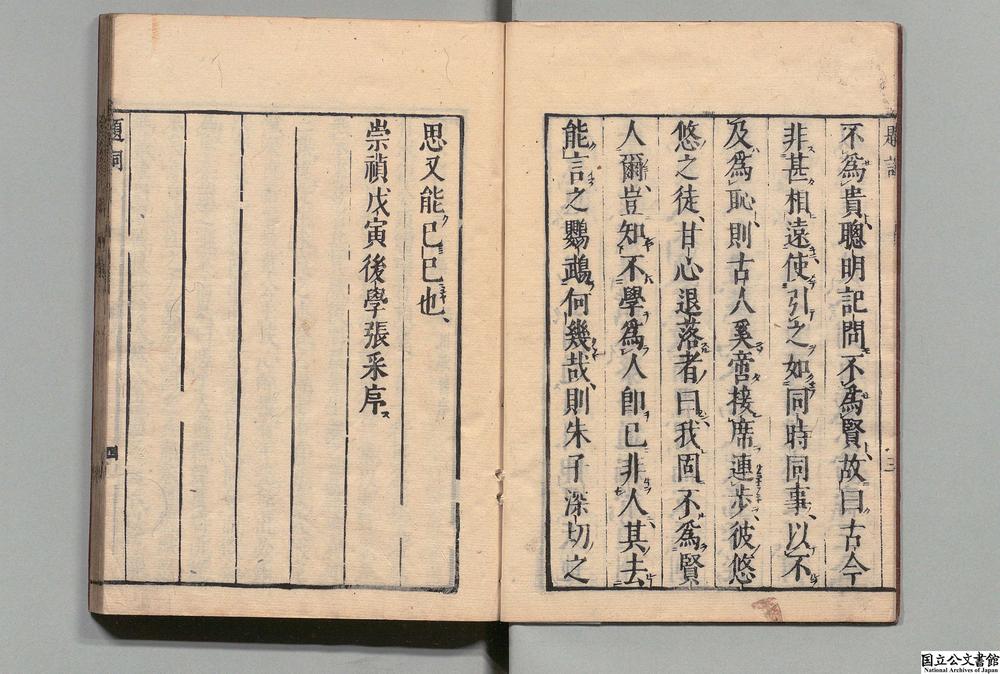 不爲貴聰明記問不爲賢故曰古今
非甚相遠使引之如同時同事以不
及爲恥則古人奚啻接席連步彼悠
悠之徒甘心退落者曰我固不爲賢
人爾豈知不學爲人卽已非人其去
能言之鸚鵡何幾哉則朱子深切之
思又能已已也
崇禎戊寅後學張采序
題詞
四
国立公文書館
National Archives of Japan